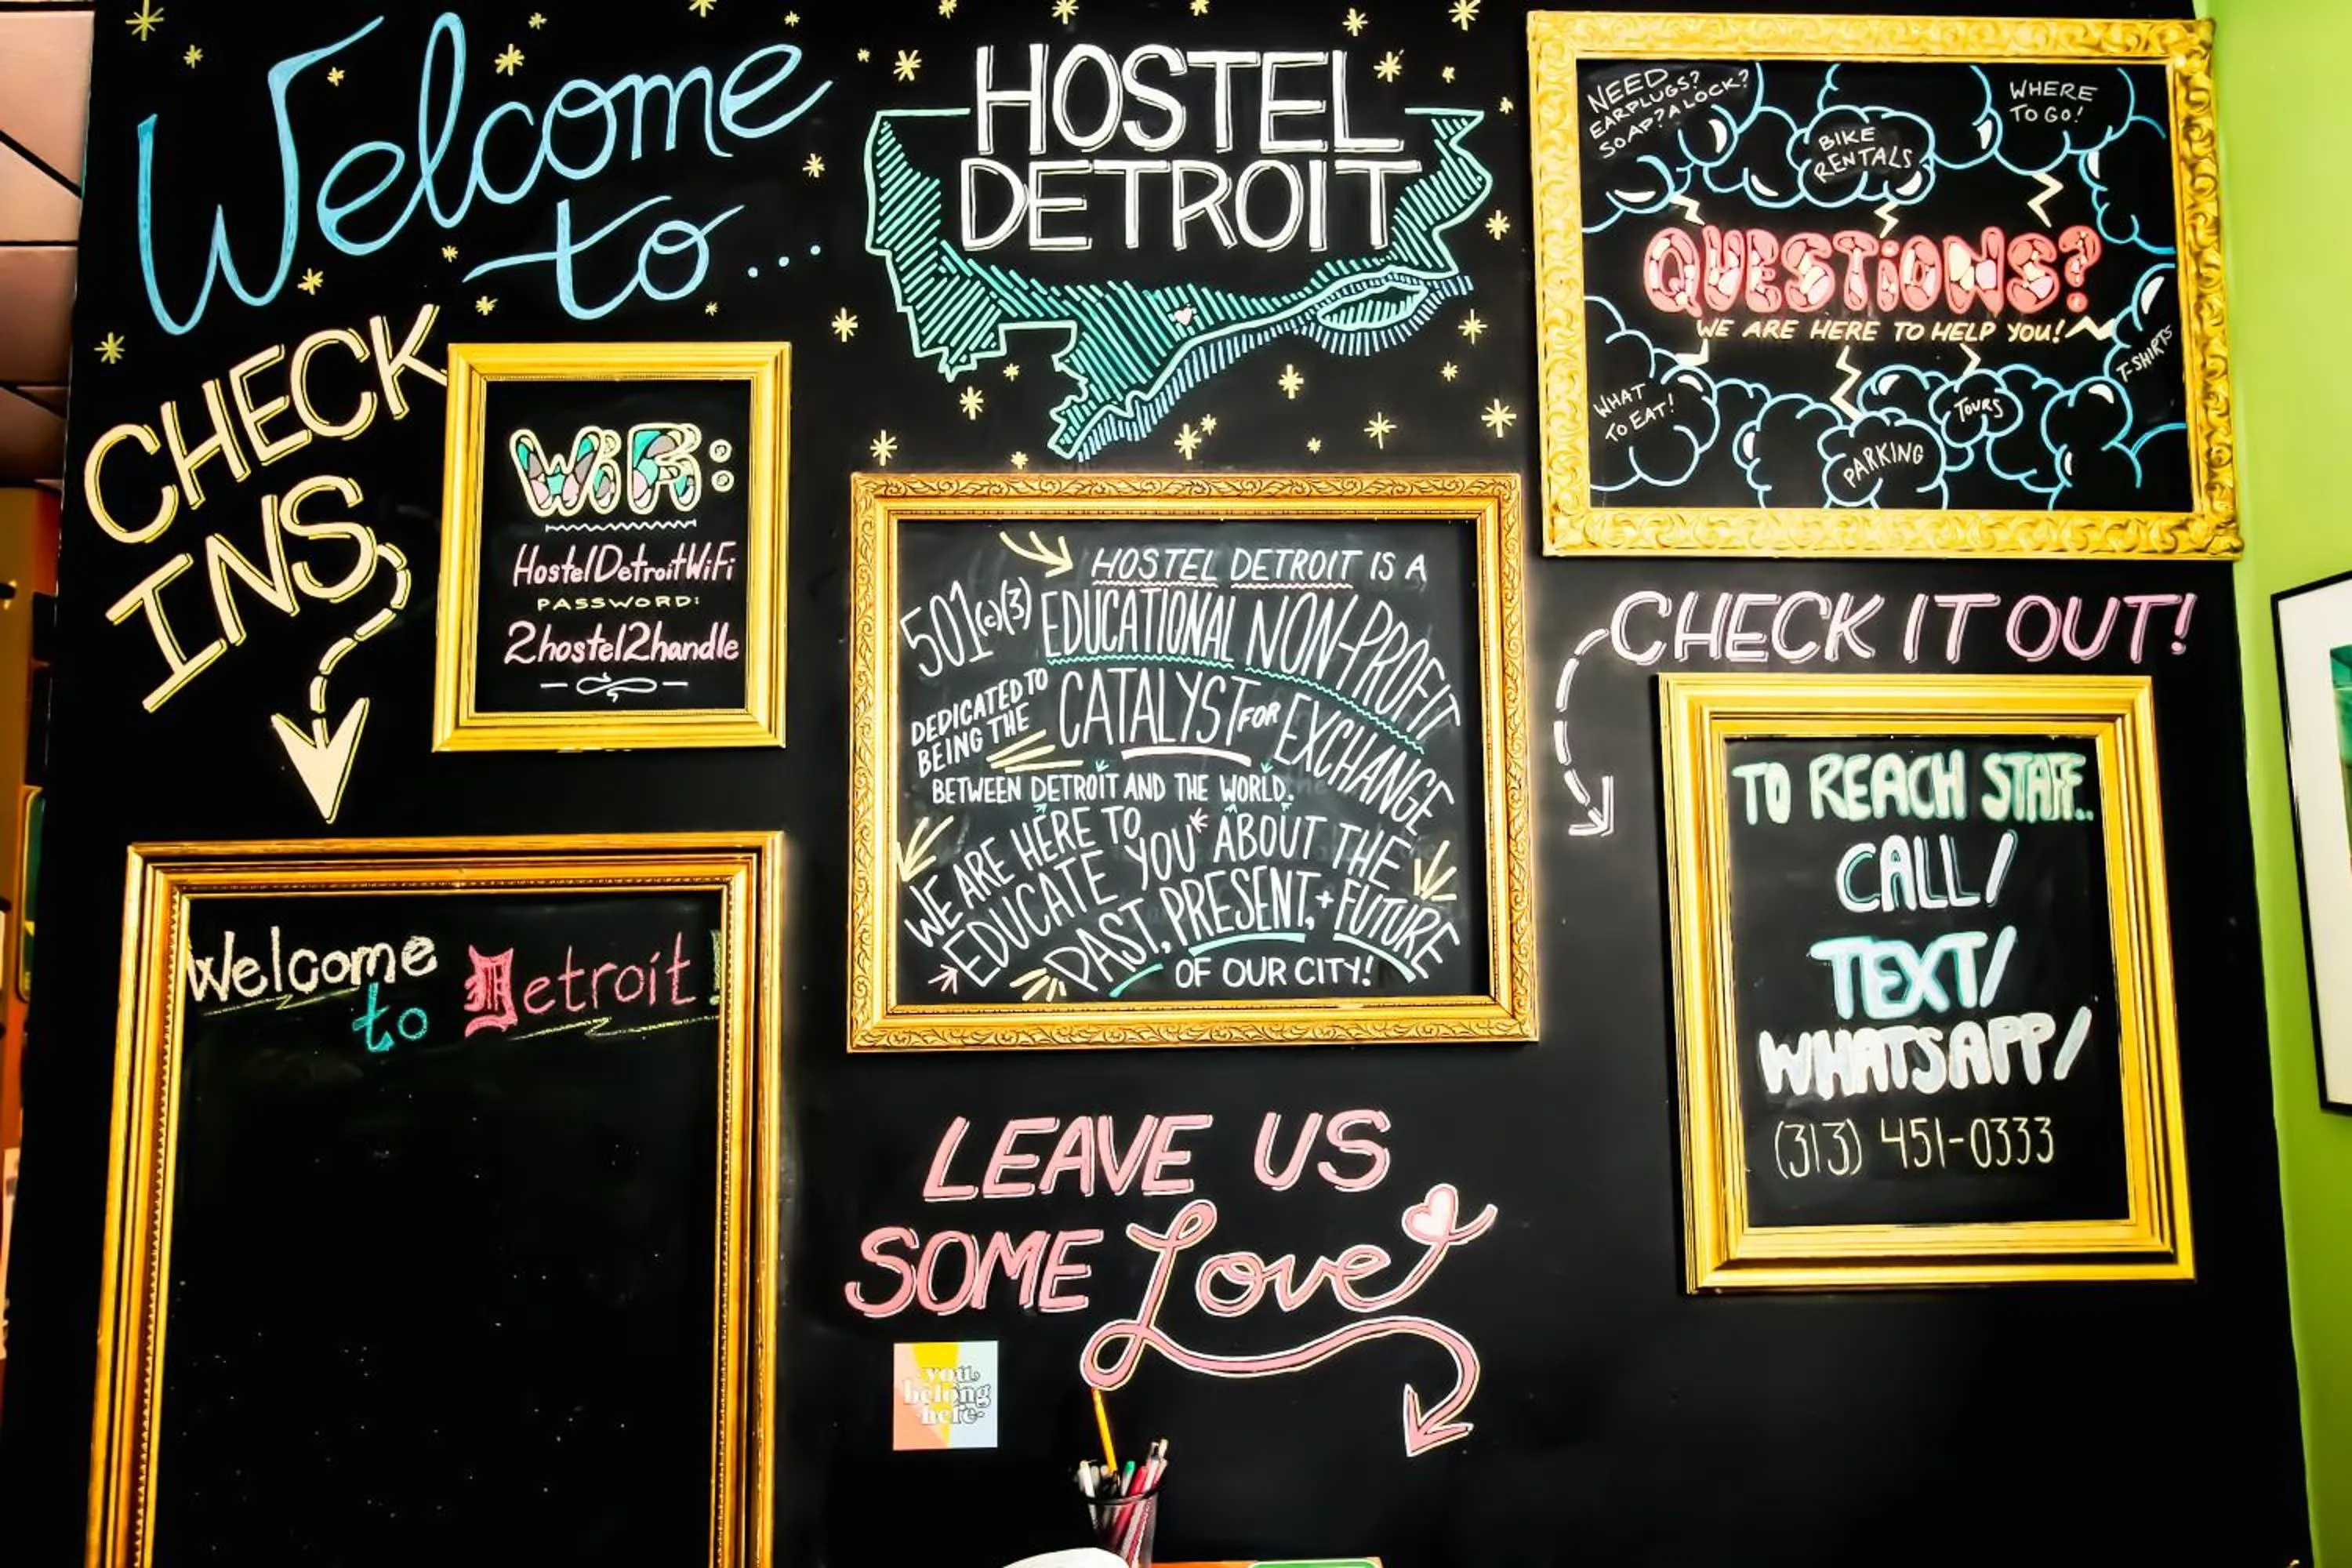 Welcome
to...
HOSTEL
DETROIT
CHECK
INS
WiFi:
HostelDetroitWiFi
PASSWORD:
2hostel2handle
NEED
EARPLUGS?
SOAP? A LOCK?
BIKE
RENTALS
WHERE
TO GO!
QUESTIONS?
WE ARE HERE TO HELP YOU!
WHAT
TO EAT!
PARKING
TOURS
T-SHIRTS
HOSTEL DETROIT IS A
501(c)(3) EDUCATIONAL NON-PROFIT
DEDICATED TO
BEING THE
CATALYST FOR EXCHANGE
BETWEEN DETROIT AND THE WORLD.
WE ARE HERE TO
EDUCATE YOU ABOUT THE
PAST, PRESENT, + FUTURE
OF OUR CITY!
CHECK IT OUT!
TO REACH STAFF..
CALL/
TEXT/
WHATSAPP/
(313) 451-0333
Welcome
to Detroit!
LEAVE US
SOME Love
you
belong
here.